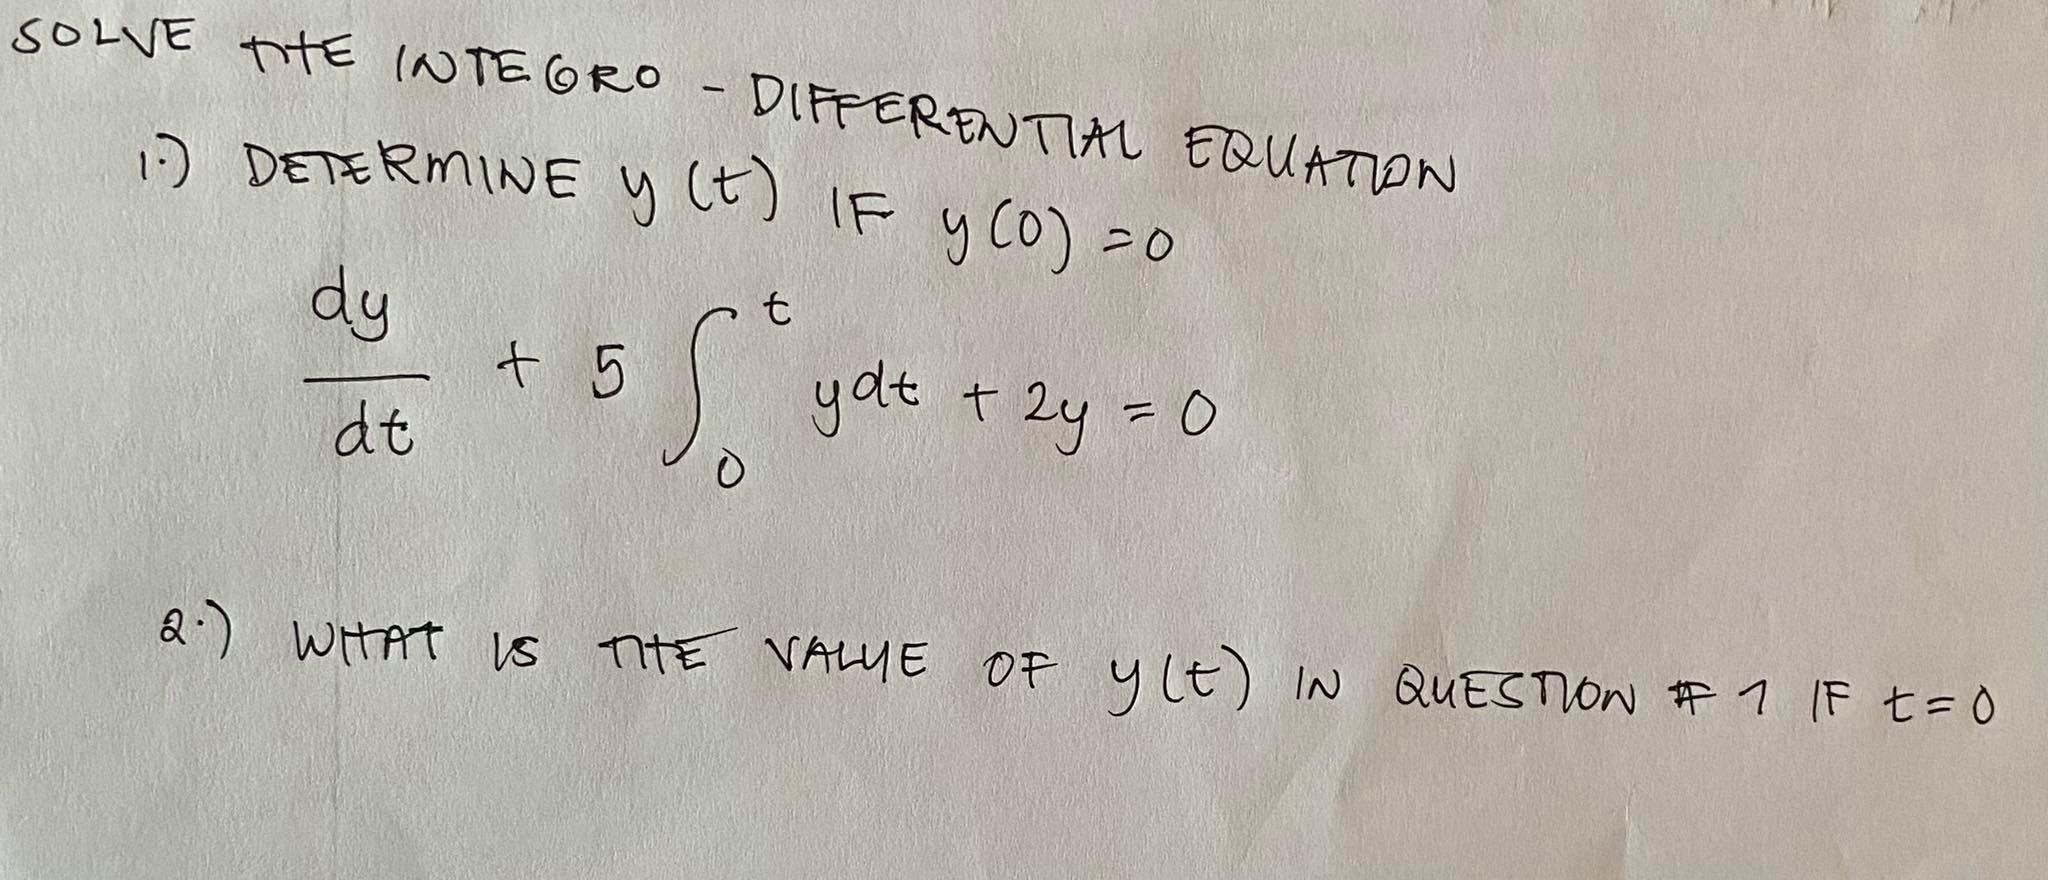 SOLVE THE INTEGRO - DIFFERENTIAL EQUATION
1.) DETERMINE y(t) IF y(0) = 0
dy/dt + 5 ∫₀ᵗ ydt + 2y = 0
2.) WHAT IS THE VALUE OF y(t) IN QUESTION # 1 IF t = 0